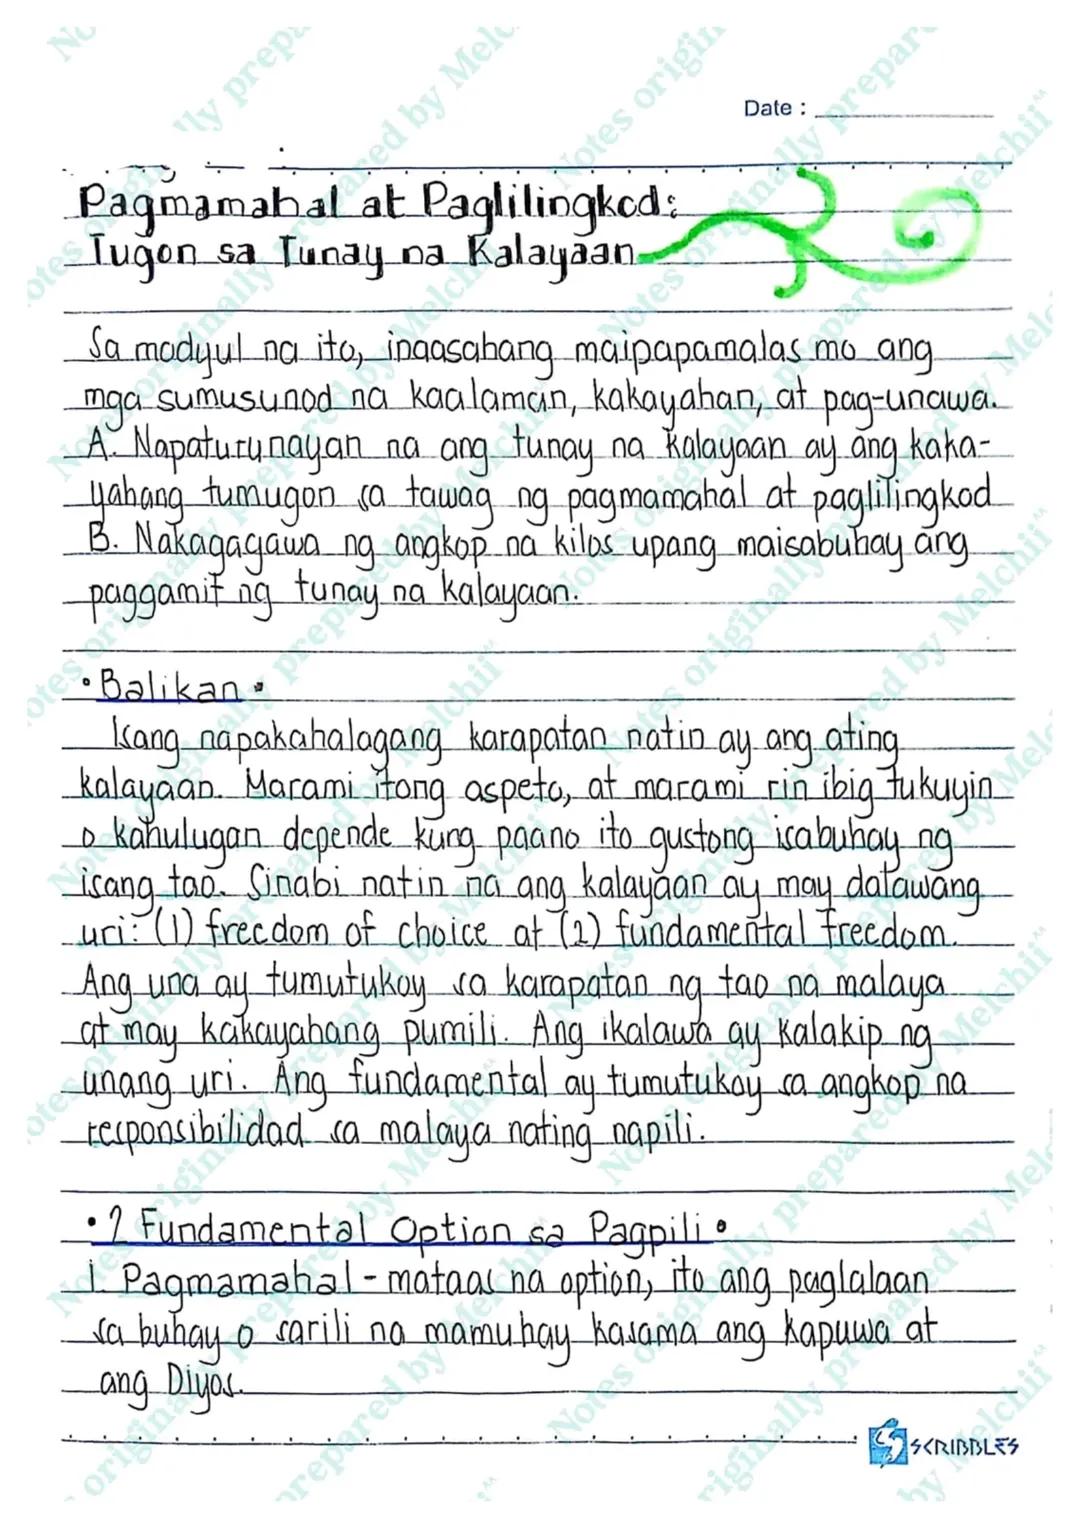 Date :
Pagmamahal at Paglilingkod:
Tugon sa Tunay na Kalayaan
Sa modyul na ito, inaasahang maipapamalas mo ang
mga sumusunod na kaalaman, kakayahan, at pag-unawa.
A. Napaturunayan na ang tunay na kalayaan ay ang kaka-
yahang tumugon sa tawag ng pagmamahal at paglilingkod
B. Nakagagawa ng angkop na kilos upang maisabuhay ang
paggamit ng tunay na kalayaan.
• Balikan •
Isang napakahalagang karapatan natin ay ang ating
kalayaan. Marami itong aspeto, at marami rin ibig tukuyin
o kahulugan depende kung paano ito gustong isabuhay ng
isang tao. Sinabi natin na ang kalayaan ay may dalawang
uri: (1) freedom of choice at (2) fundamental freedom.
Ang una ay tumutukoy sa karapatan ng tao na malaya
at may kakayahang pumili. Ang ikalawa ay kalakip ng
unang uri. Ang fundamental ay tumutukoy sa angkop na
responsibilidad sa malaya nating napili.
• 2 Fundamental Option sa Pagpili •
1. Pagmamahal - mataas na option, ito ang paglalaan
sa buhay o sarili na mamuhay kasama ang kapuwa at
ang Diyos.
SCRIBBLES
Notes originally prepared by Melchii^^